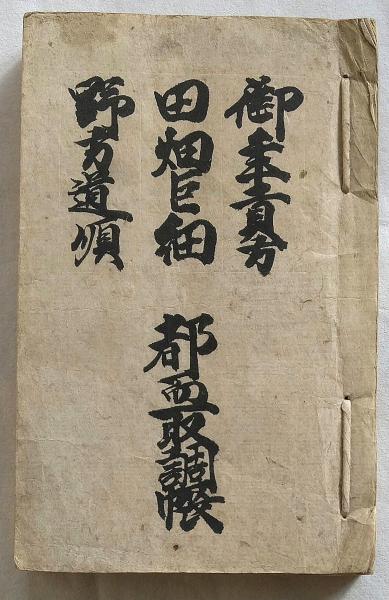 御年貢方
田畑巨細
野方道順
都而取調帳